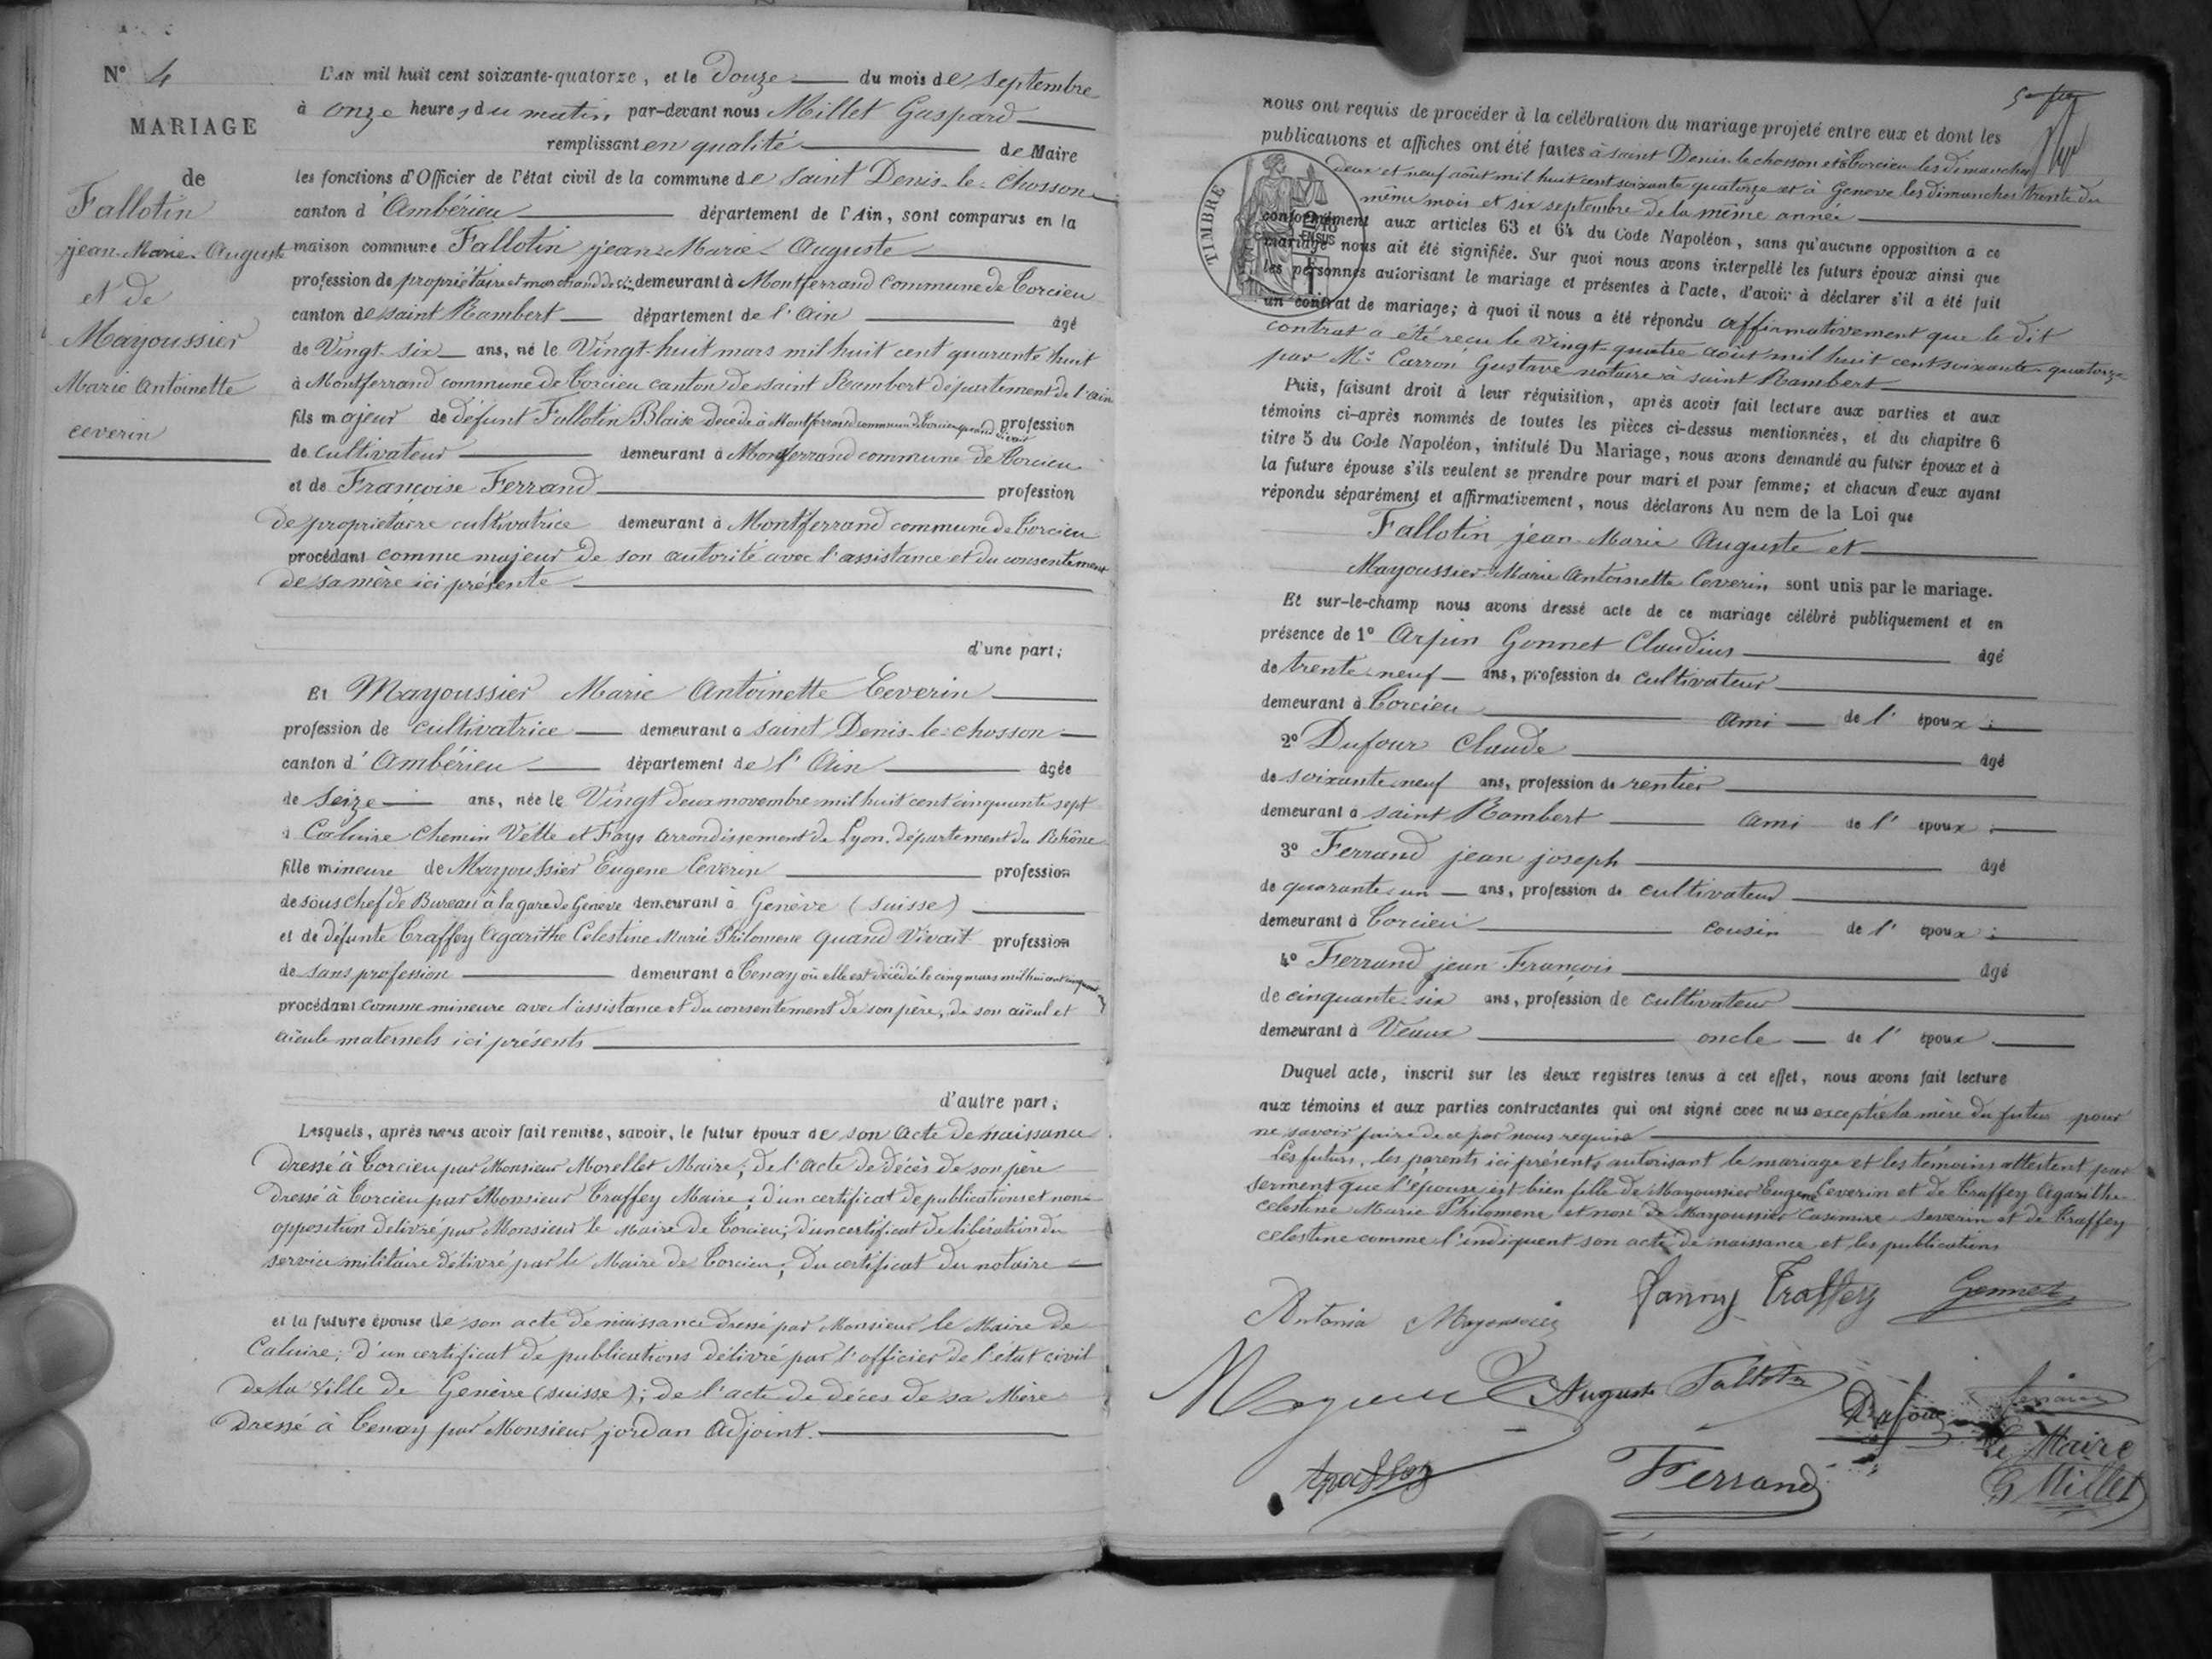 N° 4
MARIAGE
de
Fallotin
jean-Marie-Auguste
et de
Mayoussier
Marie Antoinette
ceverin
L'AN mil huit cent soixante-quatorze, et le Douze du mois de septembre
à onze heures du matin par-devant nous Millet Gaspard
remplissant en qualité de Maire
les fonctions d'Officier de l'état civil de la commune de Saint Denis-le-chosson
canton d'Ambérieu département de l'Ain, sont comparus en la
maison commune Fallotin jean-Marie-Auguste
profession de propriétaire et marchand de demeurant à Montferrand commune de Torcieu
canton de saint Rambert département de l'ain âgé
de Vingt-six ans, né le Vingt-huit mars mil huit cent quarante huit
à Montferrand commune de Torcieu canton de saint Rambert département de l'ain
fils majeur de défunt Fallotin Blaise décédé à Montferrand commune de Torcieu quand vivait profession
de cultivateur demeurant à Montferrand commune de Torcieu
et de Françoise Ferrand profession
de propriétaire cultivatrice demeurant à Montferrand commune de Torcieu
procédant comme majeur de son autorité avec l'assistance et du consentement
de sa mère ici présente
d'une part;
Et Mayoussier Marie Antoinette Ceverin
profession de cultivatrice demeurant à saint Denis-le-chosson
canton d'Ambérieu département de l'Ain âgée
de seize ans, née le Vingt deux novembre mil huit cent cinquante sept
à Caluire Chemin Vette et Fays arrondissement de Lyon, département du Rhône
fille mineure de Mayoussier Eugene Ceverin profession
de sous chef de Bureau à la gare de Genève demeurant à Genève (suisse)
et de défunte Traffey Agarithe Celestine Marie Philomene quand Vivait profession
de sans profession demeurant à Tenay où elle est décédée le cinq mars mil huit cent
procédant comme mineure avec l'assistance et du consentement de son père, de son aïeul et
aïeule maternels ici présents
d'autre part;
Lesquels, après nous avoir fait remise, savoir, le futur époux de son acte de naissance
dressé à Torcieu par Monsieur Morellet Maire; de l'acte de décès de son père
dressé à Torcieu par Monsieur Traffey Maire; d'un certificat de publications et non-
opposition delivré par Monsieur le Maire de Torcieu; d'un certificat de libération du
service militaire délivré par le Maire de Torcieu; du certificat du notaire
et la future épouse de son acte de naissance dressé par Monsieur le Maire de
Caluire; d'un certificat de publications délivré par l'officier de l'état civil
de la ville de Genève (suisse); de l'acte de décès de sa Mère
dressé à Tenay par Monsieur jordan Adjoint.
nous ont requis de procéder à la célébration du mariage projeté entre eux et dont les
publications et affiches ont été faites à saint Denis-le-chosson et à Torcieu les dimanches
deux et neuf août mil huit cent soixante quatorze et à Geneve les dimanches trente du
même mois et six septembre de la même année
TIMBRE
conformément aux articles 63 et 64 du Code Napoléon, sans qu'aucune opposition à ce
mariage nous ait été signifiée. Sur quoi nous avons interpellé les futurs époux ainsi que
les personnes autorisant le mariage et présentes à l'acte, d'avoir à déclarer s'il a été fait
un contrat de mariage; à quoi il nous a été répondu affirmativement que le dit
contrat a été reçu le vingt-quatre août mil huit cent soixante-quatorze
par Me Carron Gustave notaire à saint Rambert
Puis, faisant droit à leur réquisition, après avoir fait lecture aux parties et aux
témoins ci-après nommés de toutes les pièces ci-dessus mentionnées, et du chapitre 6
titre 5 du Code Napoléon, intitulé Du Mariage, nous avons demandé au futur époux et à
la future épouse s'ils veulent se prendre pour mari et pour femme; et chacun d'eux ayant
répondu séparément et affirmativement, nous déclarons Au nom de la Loi que
Fallotin jean-Marie Auguste et
Mayoussier Marie Antoinette Ceverin sont unis par le mariage.
Et sur-le-champ nous avons dressé acte de ce mariage célébré publiquement et en
présence de 1° Arpin Gonnet Claudius âgé
de trente-neuf ans, profession de cultivateur
demeurant à Torcieu ami de l'époux;
2° Dufour Claude âgé
de soixante-neuf ans, profession de rentier
demeurant à saint Rambert ami de l'époux;
3° Ferrand jean joseph âgé
de quarante-un ans, profession de cultivateur
demeurant à Torcieu cousin de l'époux;
4° Ferrand jean François âgé
de cinquante-six ans, profession de cultivateur
demeurant à Vaux oncle de l'époux.
Duquel acte, inscrit sur les deux registres tenus à cet effet, nous avons fait lecture
aux témoins et aux parties contractantes qui ont signé avec nous exceptée la mère du futur pour
ne savoir faire de ce par nous requise
Les futurs, les parents ici présents autorisant le mariage et les témoins attestent par
serment que l'épouse est bien fille de Mayoussier Eugene Ceverin et de Traffey Agarithe
celestine Marie Philomene et non de Mayoussier Casimire severin et de Traffey
celestine comme l'indiquent son acte de naissance et les publications
Antonia Mayoussier
Fanny Traffey
Gonnet
Auguste Fallotin
Dufour
Ferrand
Le Maire
G Millet